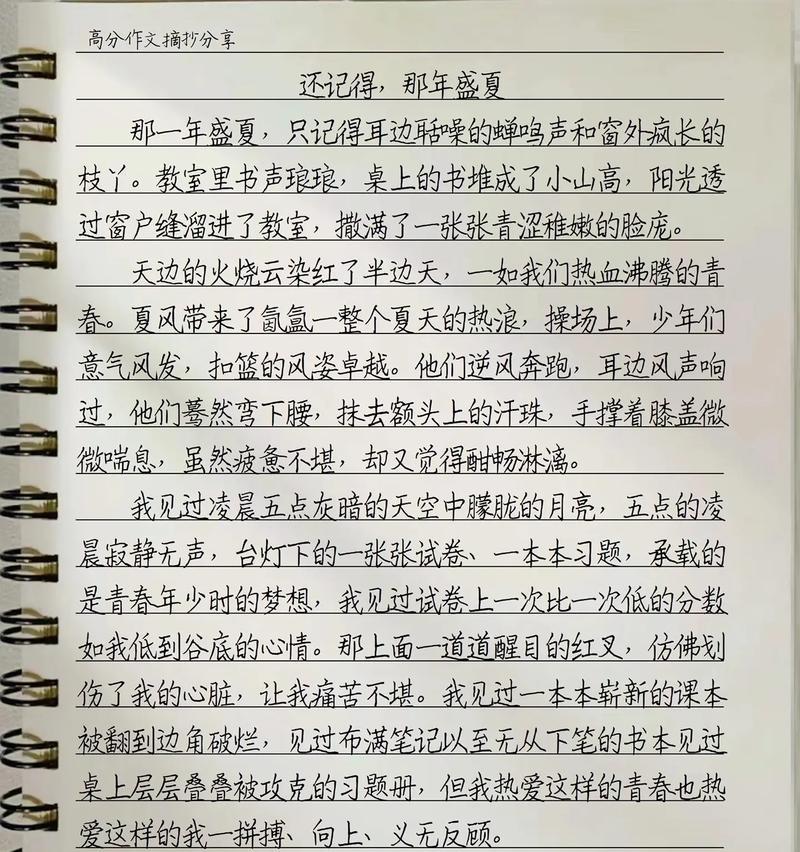 高分作文摘抄分享
还记得，那年盛夏
那一年盛夏，只记得耳边聒噪的蝉鸣声和窗外疯长的
枝丫。教室里书声琅琅，桌上的书堆成了小山高，阳光透
过窗户缝溜进了教室，撒满了一张张青涩稚嫩的脸庞。
天边的火烧云染红了半边天，一如我们热血沸腾的青
春。夏风带来了氤氲一整个夏天的热浪，操场上，少年们
意气风发，扣篮的风姿卓越。他们逆风奔跑，耳边风声响
过，他们蓦然弯下腰，抹去额头上的汗珠，手撑着膝盖微
微喘息，虽然疲惫不堪，却又觉得酣畅淋漓。
我见过凌晨五点灰暗的天空中朦胧的月亮，五点的凌
晨寂静无声，台灯下的一张张试卷、一本本习题，承载的
是青春年少时的梦想，我见过试卷上一次比一次低的分数
如我低到谷底的心情。那上面一道道醒目的红叉，仿佛划
伤了我的心脏，让我痛苦不堪。我见过一本本崭新的课本
被翻到边角破烂，见过布满笔记以至无从下笔的书本见过
桌上层层叠叠被攻克的习题册，但我热爱这样的青春也热
爱这样的我一拼搏、向上、义无反顾。